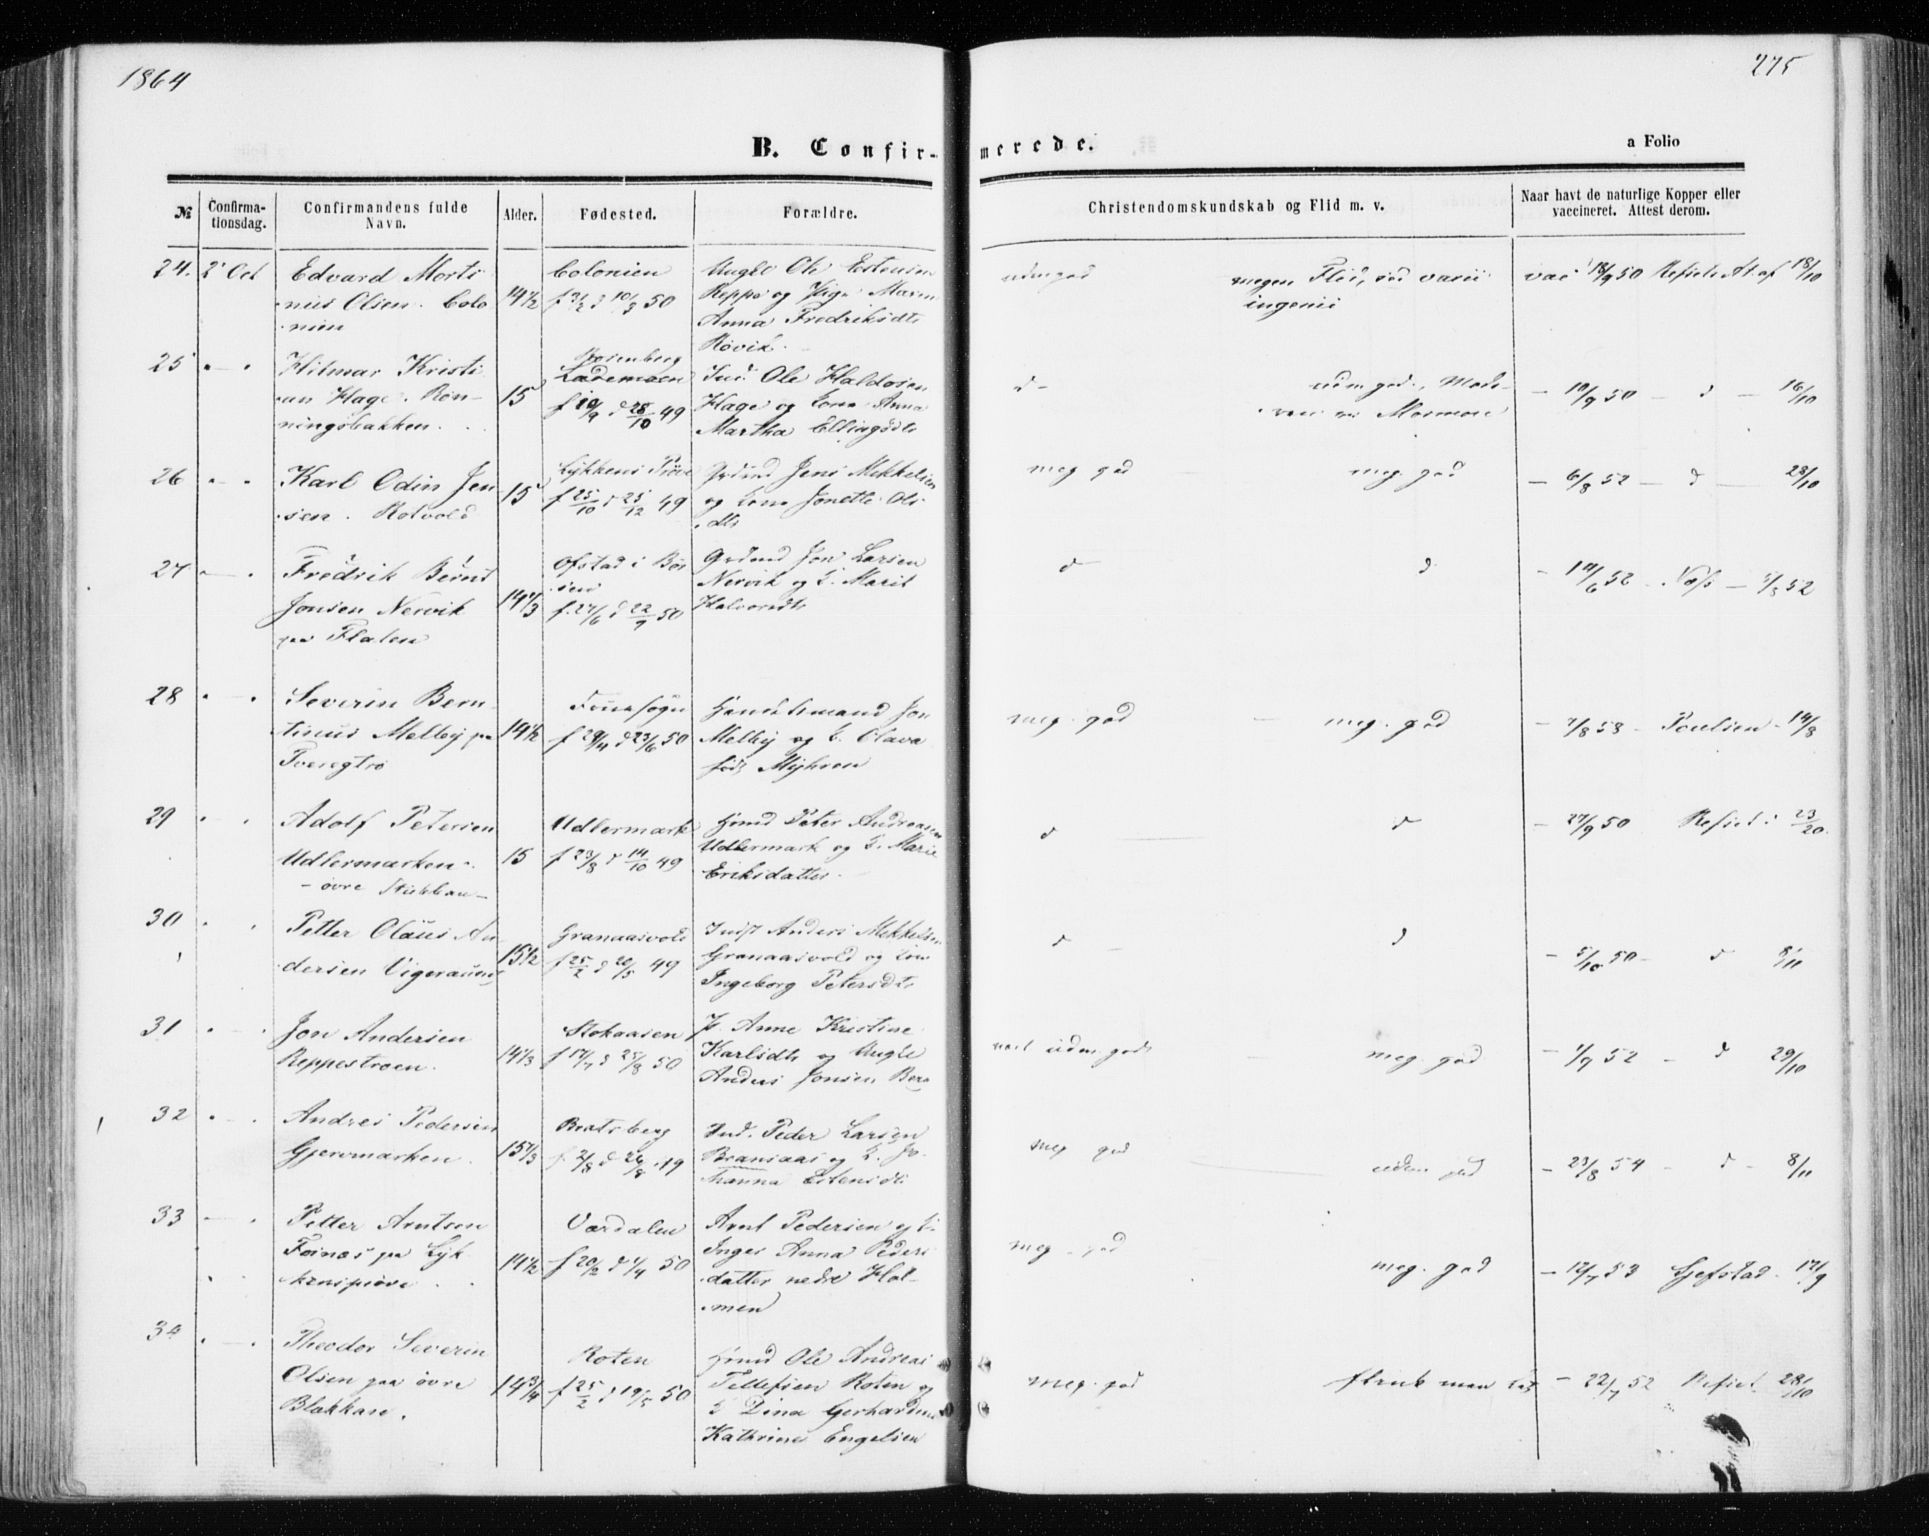 1864
275
B. Confir-
merede.
a Folio
№
Confirma-
tionsdag.
Confirmandens fulde
Navn.
Alder.
Fødested.
Forældre.
Christendomskundskab og Flid m. v.
Naar havt de naturlige Kopper eller
vaccineret. Attest derom.
24. 2' Oct
Edvard Morti
nius Olsen. Colo
nien
14½
Colonien
50
Ungk. Ole Estensen
Reppe og Pige Maren
Anna Fredriksdtr
Rovik.
udm god
megen Flid, sed varii
ingenii
vac 18/9 50 Refiets At. af 18/10
25
Hilmar Kristi
an Hage. Røn-
ningsbakken.
15
Rosenberg
Lademoen
f 10/9 d 28/10 49
Ind. Ole Haldosen
Hage og Kone Anna
Martha Ellingsdtr
d
udm god.
- 19/9 50 - d - 16/10
26
Karl Odin Jen
sen. Rotvold
15
Lykkens Prøve
f 25/10 d 25/12 49
Grdmd Jens Mikkelsen
og Kone Jonette Ols
dtr
meg god
meg. god
- 6/8 52 - d - 28/10
27
Fredrik Bernt
Jonsen Nervik
paa Flaten
14⅓
Ofstad i Bør
sen
f. 27/6 d 22/9 50
Grdmd Jon Larsen
Nervik og K. Marit
Halvorsdtr
d
d
52
28
Severin Bern
tinius Melby paa
Tveregtrø
14½
f 29/4 d 23/6 50
Huusmand Jon
Melby og K. Olava
fød Myhren
meg. god
meg. god
- 7/8 53 - Poulsen - 14/8
29
Adolf Petersen
Udlermarken
- øvre Stubban -
15
Udlermark
f 23/8 d 14/10 49
Hmd Peter Andreasen
Udlermark og K. Marie
Eriksdatter.
d
d
- 27/9 50 Refiet: 23/20.
30
Petter Olaus An
dersen Vigeraunet
15½
Granaasvold
f 25/2 d 20/5 49
Indst Anders Mikkelsen
Granaasvold og Kone
Ingeborg Petersdtr
d
d
- 5/10 50 - d 8/11
31
Jon Andersen
Reppestrøen.
14⅓
Stokaasen
f 17/7 d 25/8 50
P. Anne Kristine
Karlsdtr og Ungk
Anders Jonsen Berg
udm. god
meg. god
- 1/7 52 - d 29/10
32
Andreas Pedersen
Gjervmarken.
15⅓
Bratsberg
Ind. Peder Larsen
Bransaas og K. Jo
hanna Estensdtr.
meg god
udm god
- 23/8 54 - d - 8/11
33
Petter Arntsen
Foinæs paa Lyk
kensprøve
14½
Værdalen
f 20/2 d 1/4 50
Arnt Pedersen og K.
Inger Anna Peders
datter nedre Hol-
men
meg. god
meg. god
- 12/7 53 Gjefstad. 17/9
34
Theodor Severin
Olsen paa øvre
Blakkan.
14¾
Roten
f 25/2 d 19/5 50
Hmd Ole Andreas
Tellefsen Roten og
K Dina Gerhardine
Kathrine Engelsen
meg. god
- 22/7 52 Refiet. 28/10